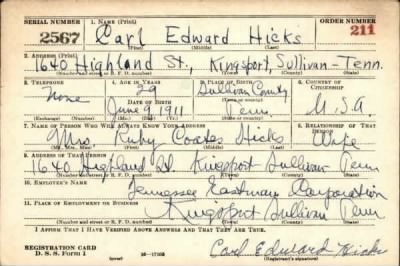 SERIAL NUMBER 1. NAME (Print) ORDER NUMBER
2567 Carl Edward Hicks 211
(First) (Middle) (Last)
2. ADDRESS (Print)
1640 Highland St., Kingsport, Sullivan-Tenn.
(Number and street or R. F. D. number) (Town) (County) (State)
3. TELEPHONE 4. AGE IN YEARS 5. PLACE OF BIRTH 6. COUNTRY OF CITIZENSHIP
None 29 Sullivan County
DATE OF BIRTH (Town or county)
June 9 1911 Tenn U.S.A
(Exchange) (Number) (Mo.) (Day) (Yr.) (State or country)
7. NAME OF PERSON WHO WILL ALWAYS KNOW YOUR ADDRESS 8. RELATIONSHIP OF THAT PERSON
Mrs. Ruby Coates Hicks Wife
(Mr., Mrs., Miss) (First) (Middle) (Last)
9. ADDRESS OF THAT PERSON
1640 Highland St Kingsport Sullivan Tenn
(Number and street or R. F. D. number) (Town) (County) (State)
10. EMPLOYER'S NAME
Tennessee Eastman Corporation
11. PLACE OF EMPLOYMENT OR BUSINESS
Kingsport Sullivan Tenn
(Number and street or R. F. D. number) (Town) (County) (State)
I AFFIRM THAT I HAVE VERIFIED ABOVE ANSWERS AND THAT THEY ARE TRUE.
REGISTRATION CARD
D. S. S. Form 1 (over) Carl Edward Hicks
(Registrant's signature)